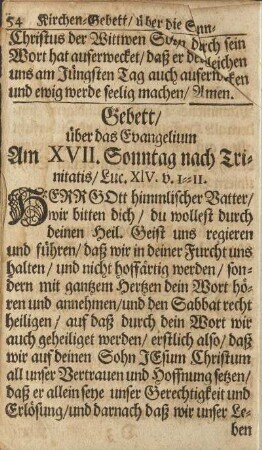 54 Kirchen-Gebett/ über die Sun-
Christus der Wittwen Sohn durch sein
Wort hat auferwecket/ daß er dergleichen
uns am Jüngsten Tag auch auferwecken
und ewig werde seelig machen/ Amen.
Gebett/
über das Evangelium
Am XVII. Sonntag nach Tri-
nitatis/ Luc. XIV. v. 1=11.
HERR GOtt himmlischer Vatter/
wir bitten dich/ du wollest durch
deinen Heil. Geist uns regieren
und führen/ daß wir in deiner Furcht uns
halten/ und nicht hoffärtig werden/ son-
dern mit gantzem Hertzen dein Wort hö-
ren und annehmen/ und den Sabbat recht
heiligen/ auf daß durch dein Wort wir
auch geheiliget werden/ erstlich also/ daß
wir auf deinen Sohn JEsum Christum
all unser Vertrauen und Hoffnung setzen/
daß er allein seye unser Gerechtigkeit und
Erlösung/ und darnach daß wir unser Le-
ben